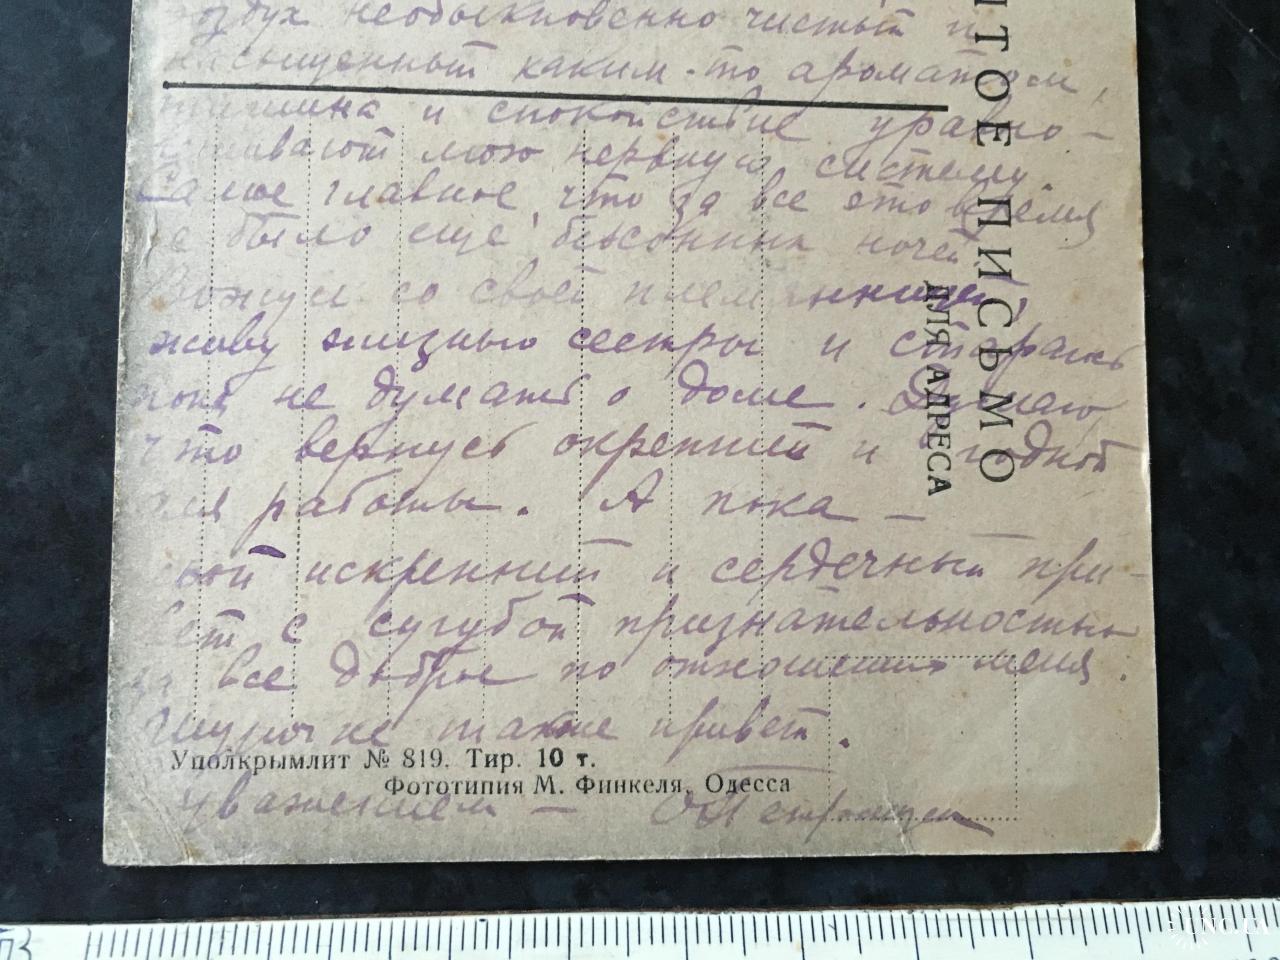 воздух необыкновенно чистый и
насыщенный каким-то ароматом,
тишина и спокойствие уравно-
вешивают мою нервную систему.
Самое главное, что за все это время
не было еще бессонных ночей.
Вожусь со своей племянницей,
живу жизнью сестры и стараюсь
не думать о доме. Думаю,
что вернусь окрепший и годной
для работы. А пока —
мой искренний и сердечный при-
вет с сугубой признательностью
за все доброе по отношению меня.
Шурочке также привет.
уважением —
Уполкрымлит № 819. Тир. 10 т.
Фототипия М. Финкеля, Одесса
ЫТОЕ ПИСЬМО
ДЛЯ АДРЕСА
UNC.UA